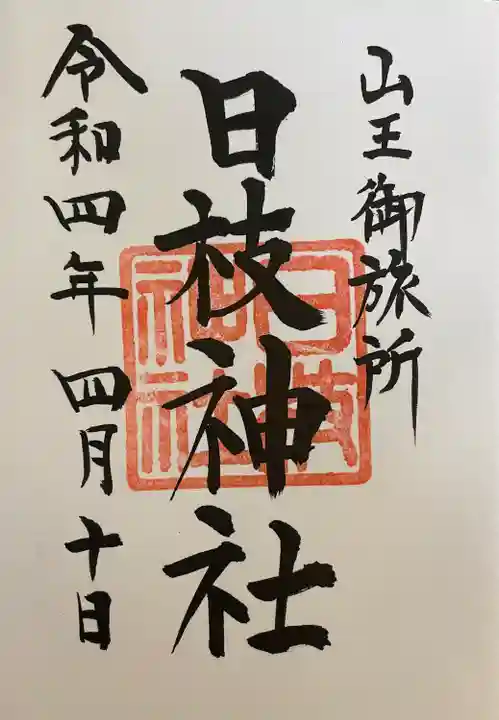 山王御旅所
日枝神社
日枝
神社
令和四年四月十日